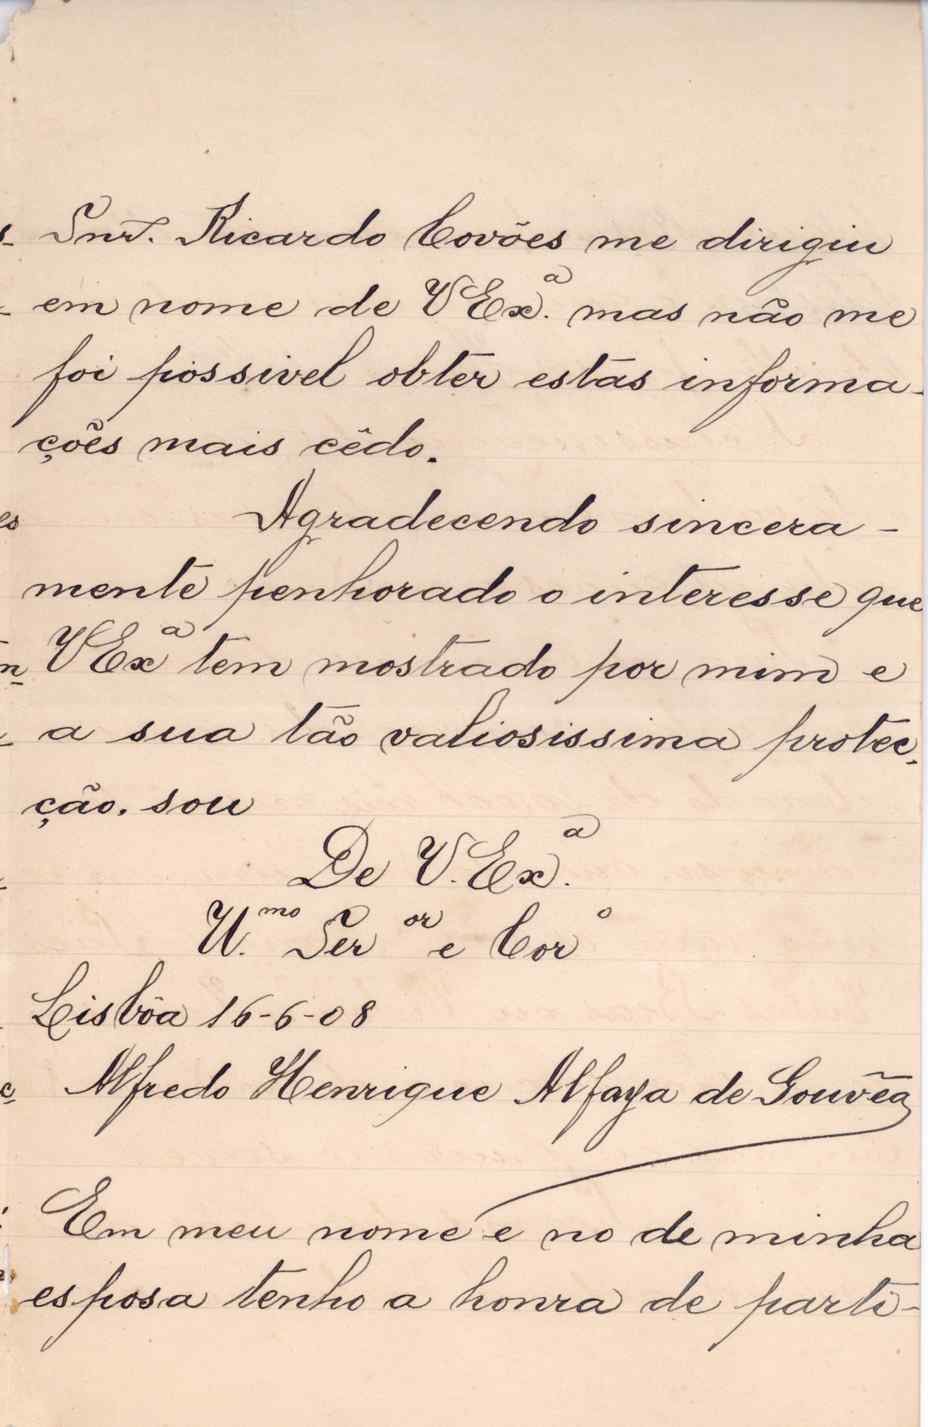 Snr. Ricardo Covões me dirigiu
em nome de V Exª. mas não me
foi possivel obter estas informa-
ções mais cêdo.
Agradecendo sincera-
mente penhorado o interesse que
V Exª tem mostrado por mim e
a sua tão valiosissima protec-
ção. sou
De V. Exª.
U.mo Ser or e Cor o
Lisbôa 16-6-08
Alfredo Henrique Alfaya de Gouvêa
Em meu nome e no de minha
esposa tenho a honra de parti-